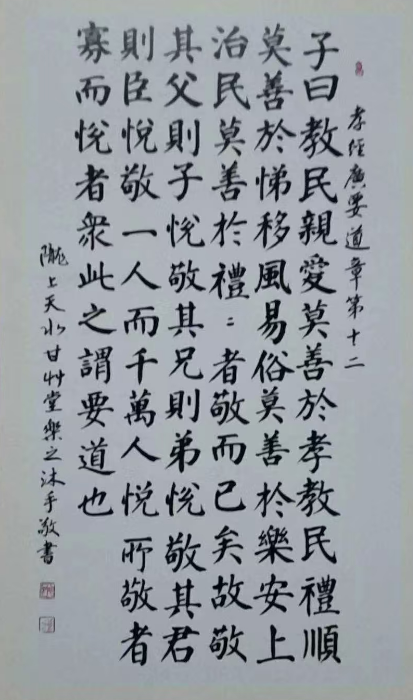 孝經廣要道章第十二
子曰教民親愛莫善於孝教民禮順
莫善於悌移風易俗莫善於樂安上
治民莫善於禮〻者敬而已矣故敬
其父則子悅敬其兄則弟悅敬其君
則臣悅敬一人而千萬人悅所敬者
寡而悅者衆此之謂要道也
隴上天水甘艸堂樂之沐手敬書